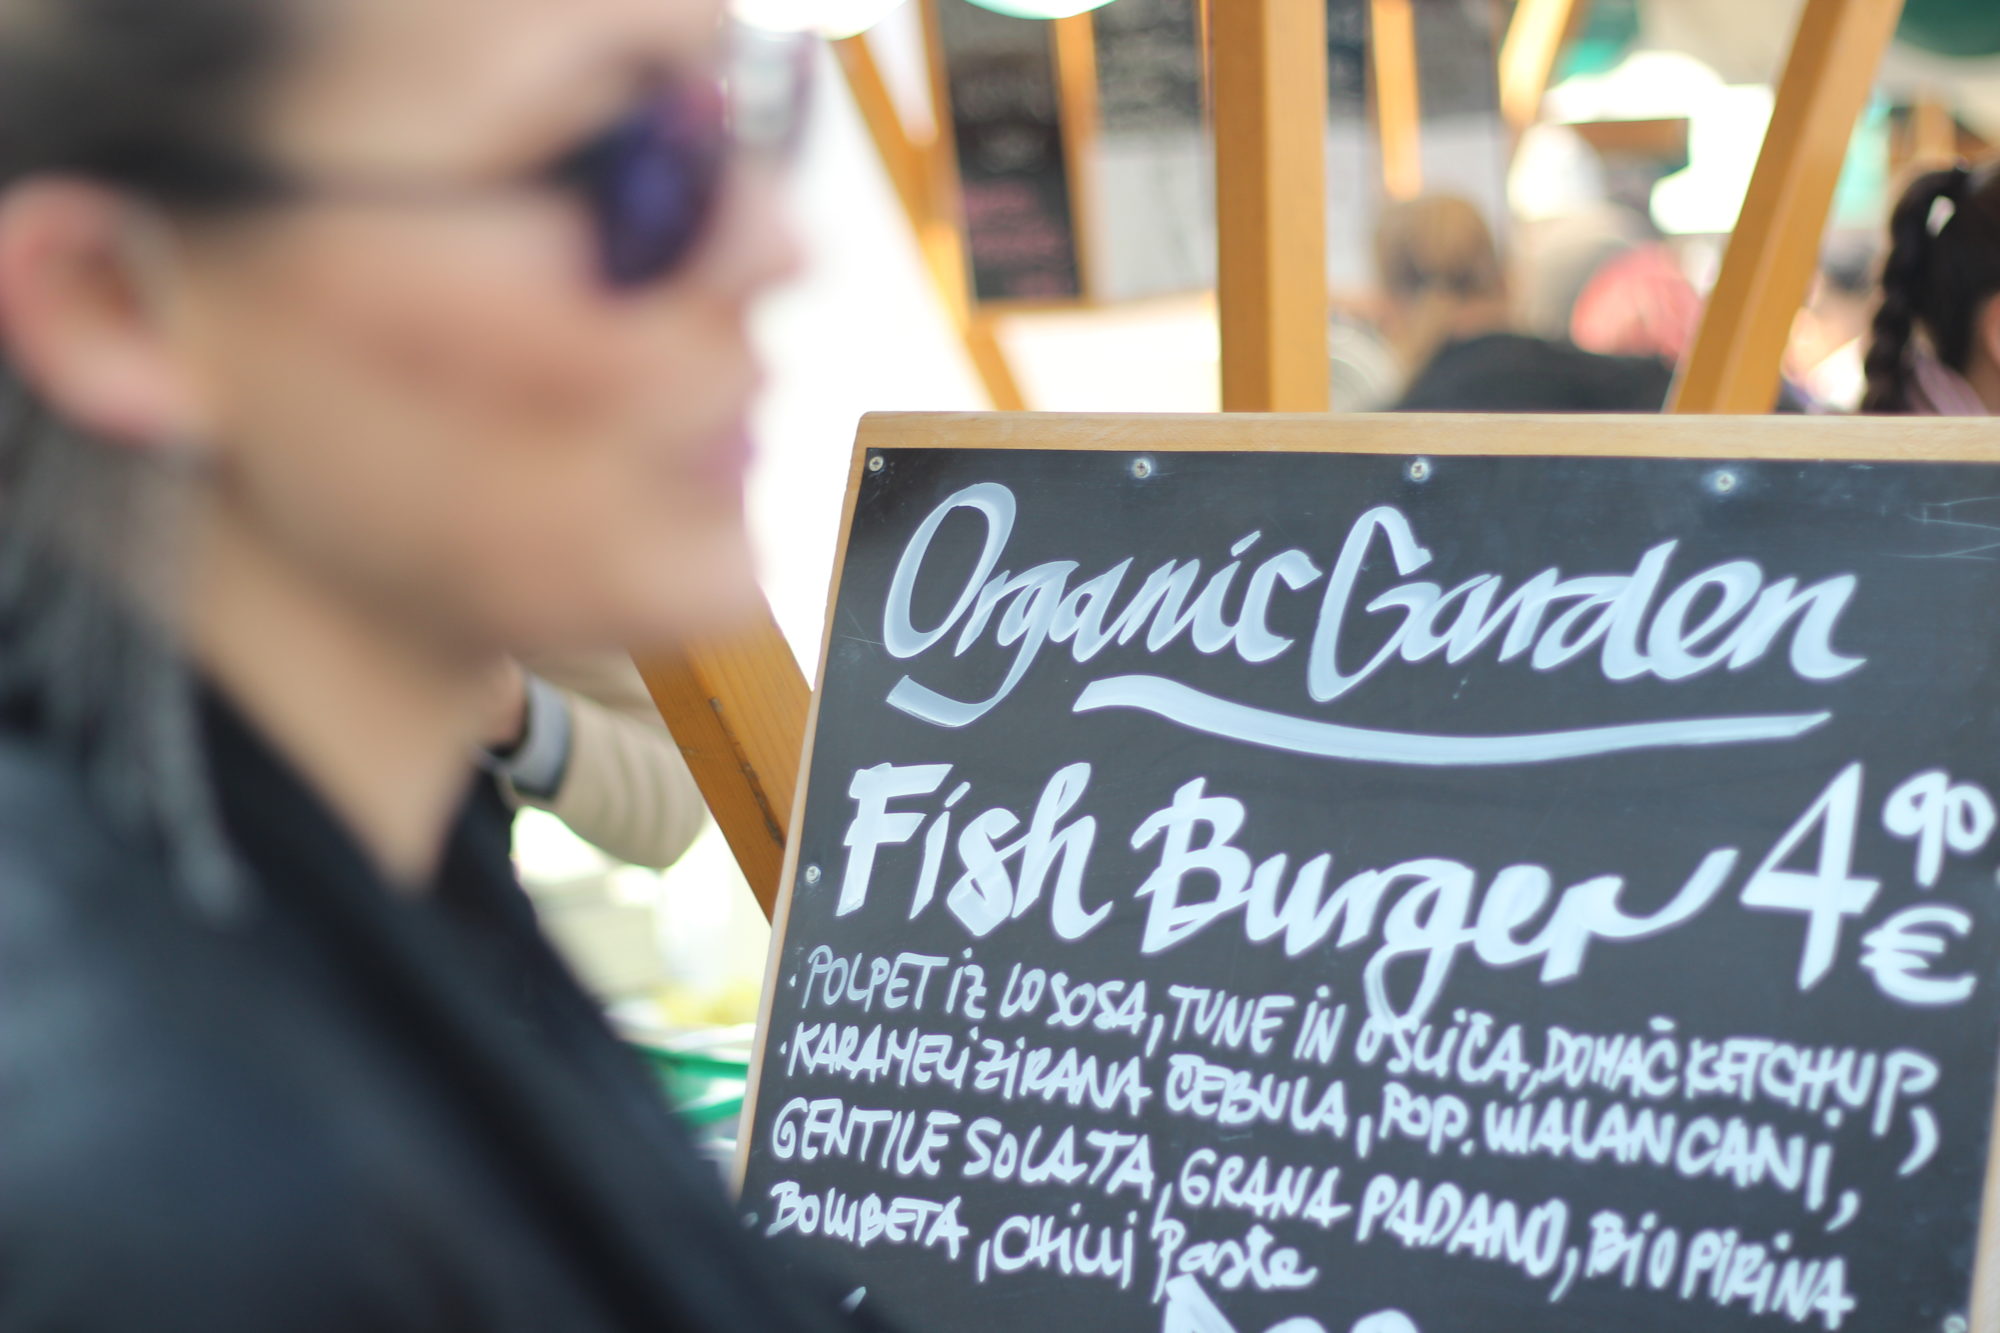 Organic Garden
Fish Burger 4,90 €
· POLPET iz LOSOSA, TUNE IN OSLIČA, DOMAČ KETCHUP,
· KARAMELIZIRANA ČEBULA, POP. MALANCANI,
GENTILE SOLATA, GRANA PADANO, BIO PIRINA
BOMBETA, CHILLI Paste